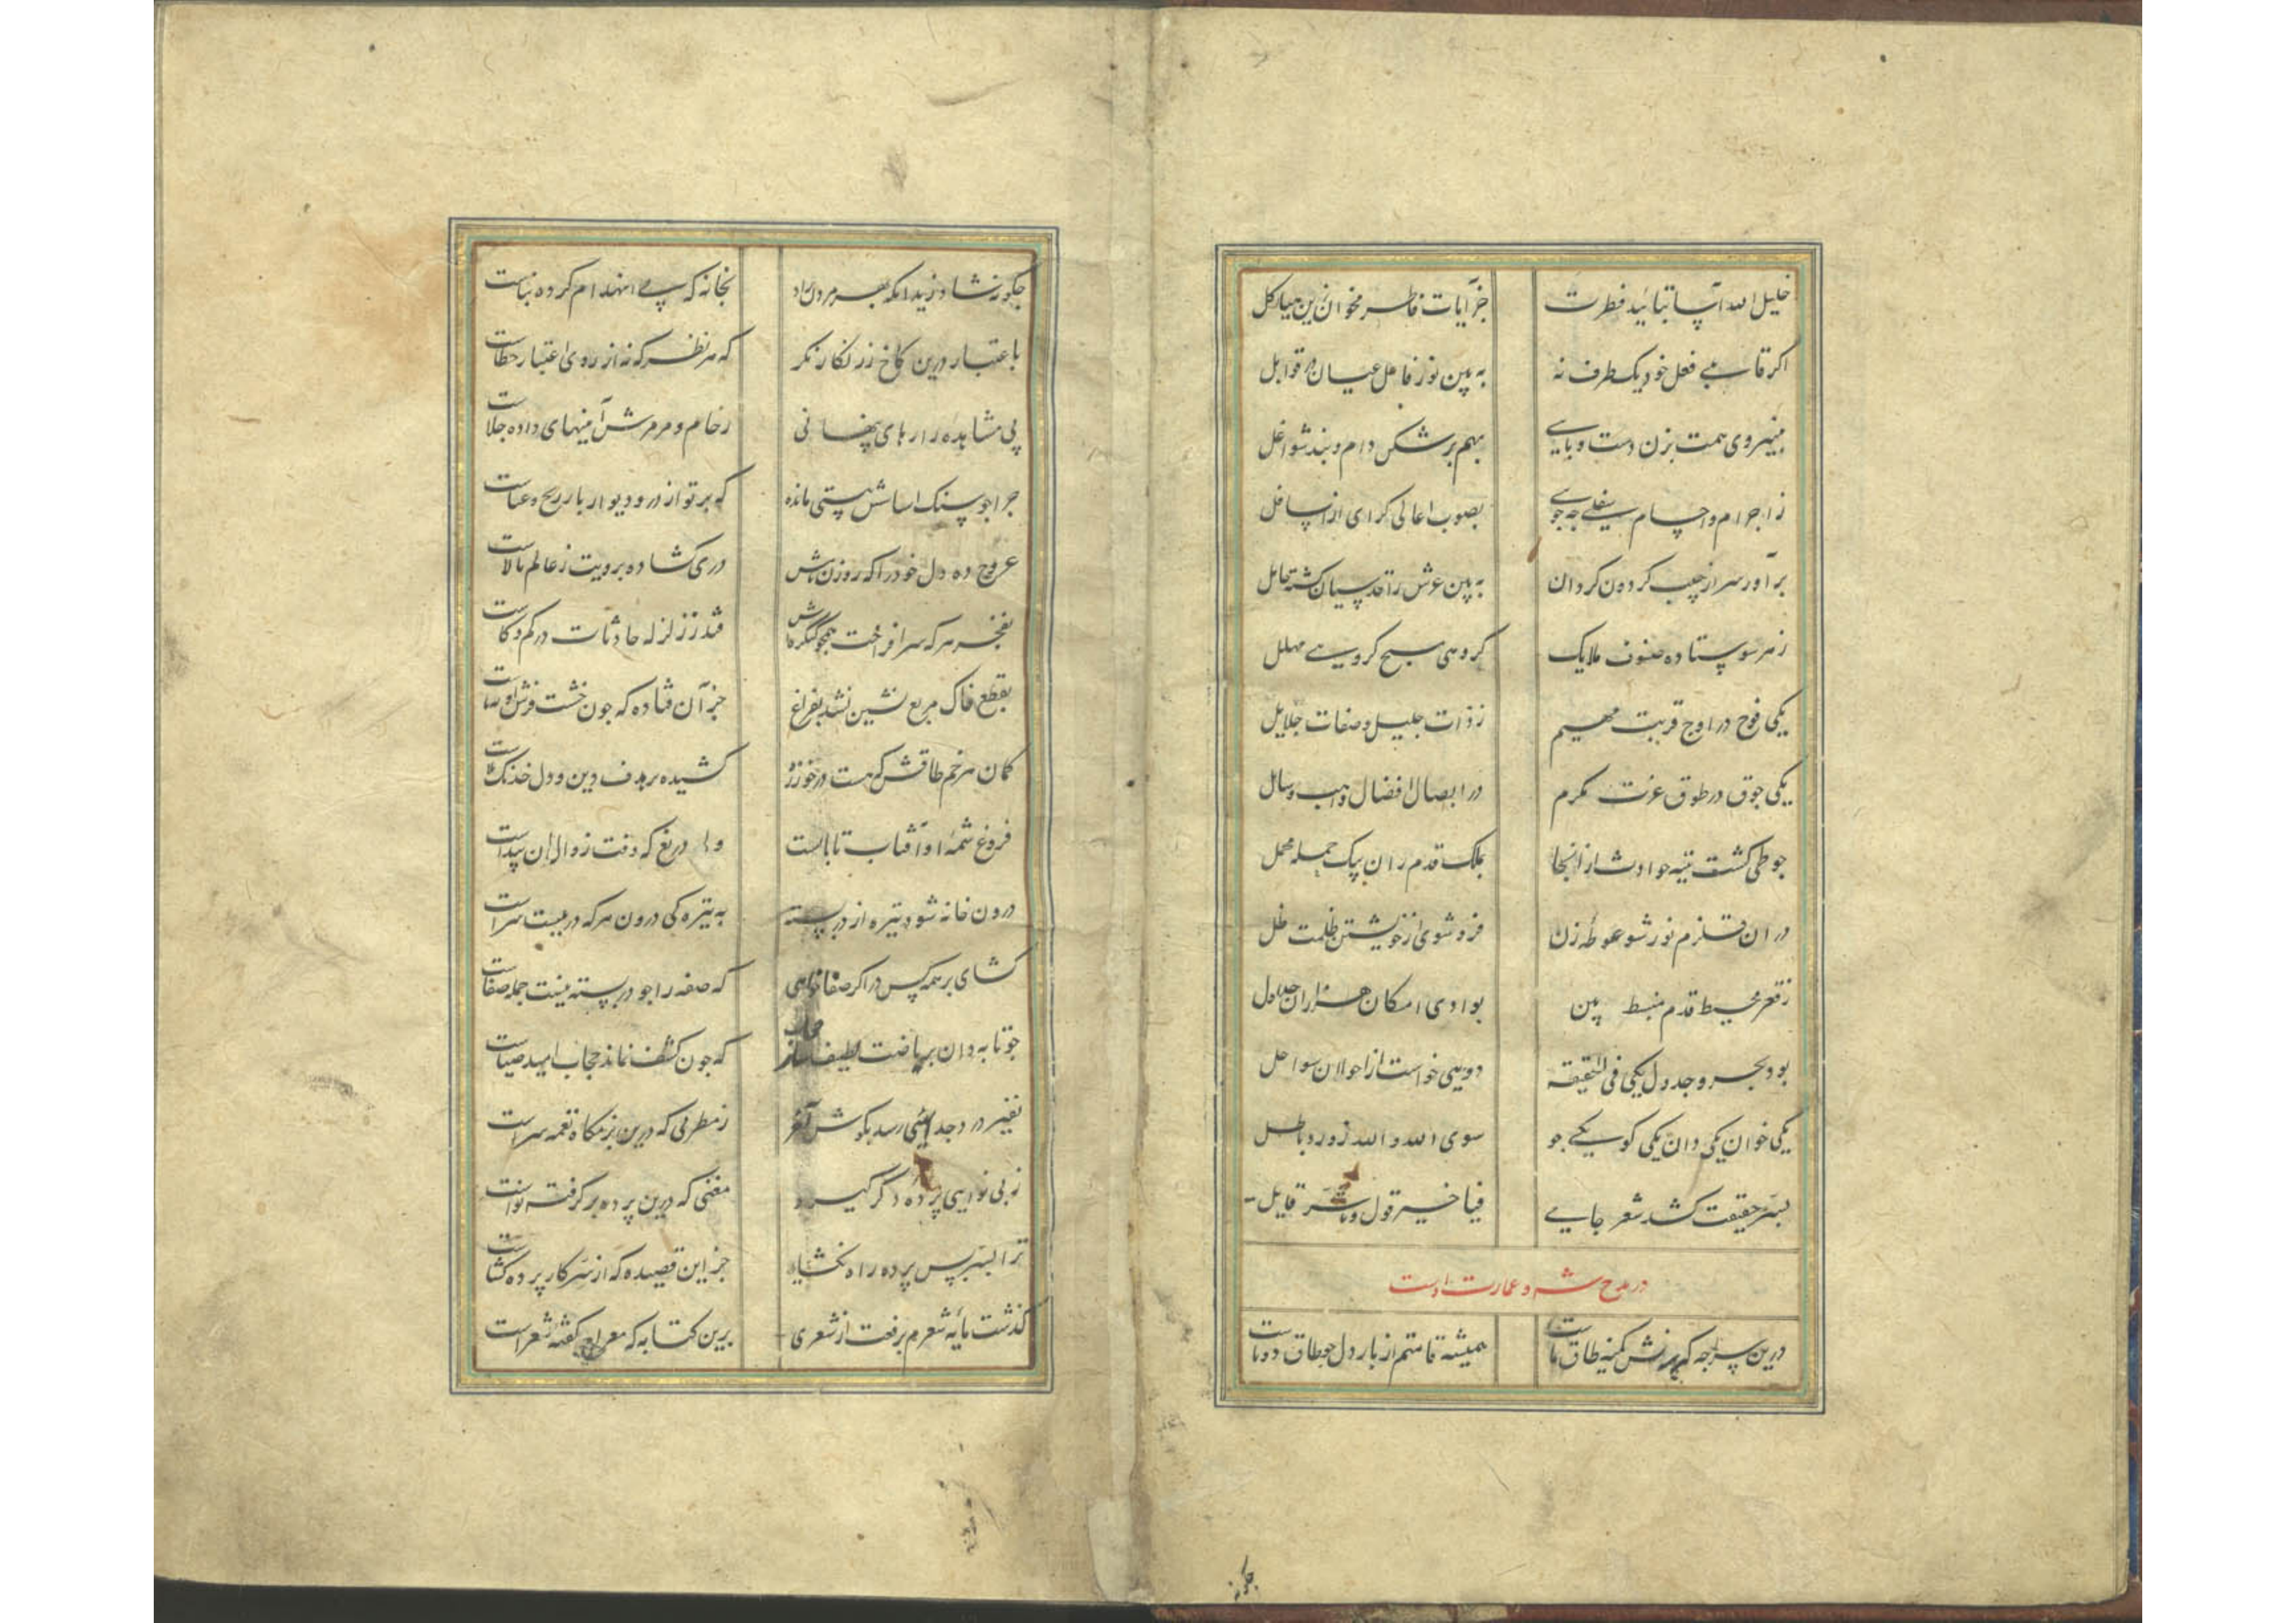 خلیل الله آسا بتائید فطرت جز آیات فاطر مخوان زین هیاکل
اکر قابلی فعل خود یکطرف نه به بین نور فاعل عیان در قوابل
بنیروی همت بزن دست و پایی بهم بر شکن دام و بند شواغل
ز اجرام و اجسام سفلی چه جویی بصوب اعالی کرای از اسافل
برآور سر از جیب کردون کردان به بین عرش را قدسیان کشته حامل
ز هر سو ستاده صفوف ملایک کروهی مسبح کروهی مهلل
یکی فوج در اوج قربت مهیم ز ذات جلیل و صفات جلایل
یکی جوق در طوق عزت مکرم در ایصال افضال واهب وسایل
جو طی کشت تیه حوادث از انجا بملک قدم ران بیک حمله محمل
در ان قلزم نور شو غوطه زن فرو شوی از خویشتن ظلمت ظل
ز قعر محیط قدم منبسط بین بوادی امکان هزاران جداول
بود بحر و جدول یکی فی الحقیقه دوبینی خواست از احولان سواحل
یکی خوان یکی دان یکی کو یکی جو سوی الله والله زور و باطل
بسر حقیقت کشد شعر جامی فیا خیر قول و یا سر قایل
در مدح شه و عمارت اوست
درین سراجه که نش کمینه طاق ما ست همیشه قامتم از بار دل جو طاق دوتاست
جکونه شاد زید انکه بهر مردن زاد بخانه که پی انهدام کرده بناست
باعتبار درین کاخ زرنکار نکر که هر نظر که نه از روی اعتبار خطاست
پی مشاهده رازهای پنهانی رخام و مرمرش آینهای داده جلاست
جرا جو سنک اساسش به پستی مانده که بر تو از در و دیوار بار رنج و عناست
عروج ده دل خود را که روزن بامش دری کشاده برویت ز عالم بالاست
بفخر هر که سر افراخت همجو کنکرهاش فتد ز زلزله حادثات در کم و کاست
بقطع خاک مربع نشین نشد بفراغ جز آن فتاده که جون خشت فرش او
کمان هر خم طاقش که هست در خور زه کشیده بر هدف دین و دل خدنک بلاست
فروغ شمه او آفتاب تابانست ولی دریغ که وقت زوال ان پیداست
درون خانه شود تیره از در بسته به تیره کی درون هر که در ببست سزاست
کشای بر همه کس در اکر صفا خواهی که صفه را جو در بسته نیست جمله صفاست
جو تابه دان بریاضت لطیف ساز حجاب که جون کثیف نماند حجاب امید ضیاست
نفیر درد جدایی رسد بکوش آخر ز مطربی که درین بزمکاه نغمه سراست
ز بی نوایی پرده دکر کیرد مغنی که درین پرده بر کرفت نواست
ترا بسر پس پرده راه نکشاید جز این قصیده که از سر کار پرده کشاست
کذشت پایه شعرم برفعت از شعری برین کتابه که معراج کفته شعراست
جکونه